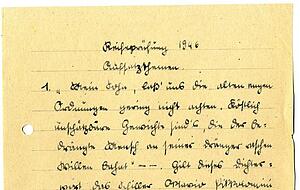 Reifeprüfung 1946
Aufsatzthemen.
1. „Mein Sohn, laß' uns die alten engen
Ordnungen gering nicht achten. Köstlich
unschätzbare Gewichte sind's, die der be-
drängte Mensch an seiner Dränger raschen
Willen band" –– . Gilt dieses Dichter-
wort das Schiller Octavio Piccolomini